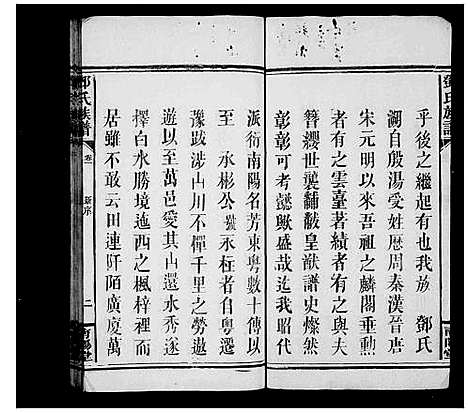 鄧氏族譜
乎後之繼起有也我族 鄧氏
溯自殷湯受姓歷周秦漢晉唐
宋元明以來吾祖之麟閣垂勳
者有之雲臺著績者有之與夫
簪纓世襲黼黻皇猷譜史燦然
彰彰可考懿歟盛哉迄我昭漢
派衍南陽名芳東粵數十傳以
至 永彬公號永桓者自粵遷
豫跋涉山川不憚千里之勞遨
遊以至萬邑愛其山還水秀遂
擇白水勝境迤西之楓梓裡而
居雖不敢云田連阡陌廣廈萬
鄧氏族譜
卷一
新序
二
南陽堂